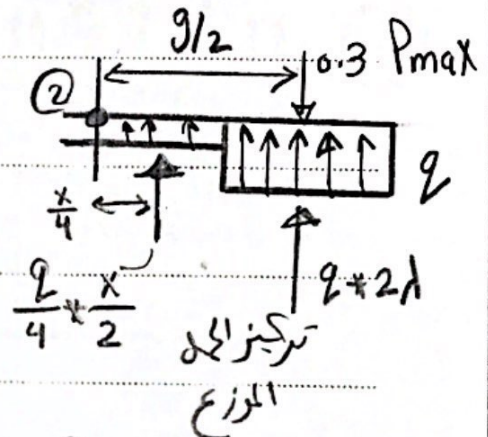 g/2
0.3 Pmax
②
q
x/4
q/4 * x/2
q * 2λ
تركيز الحمل
الموزع